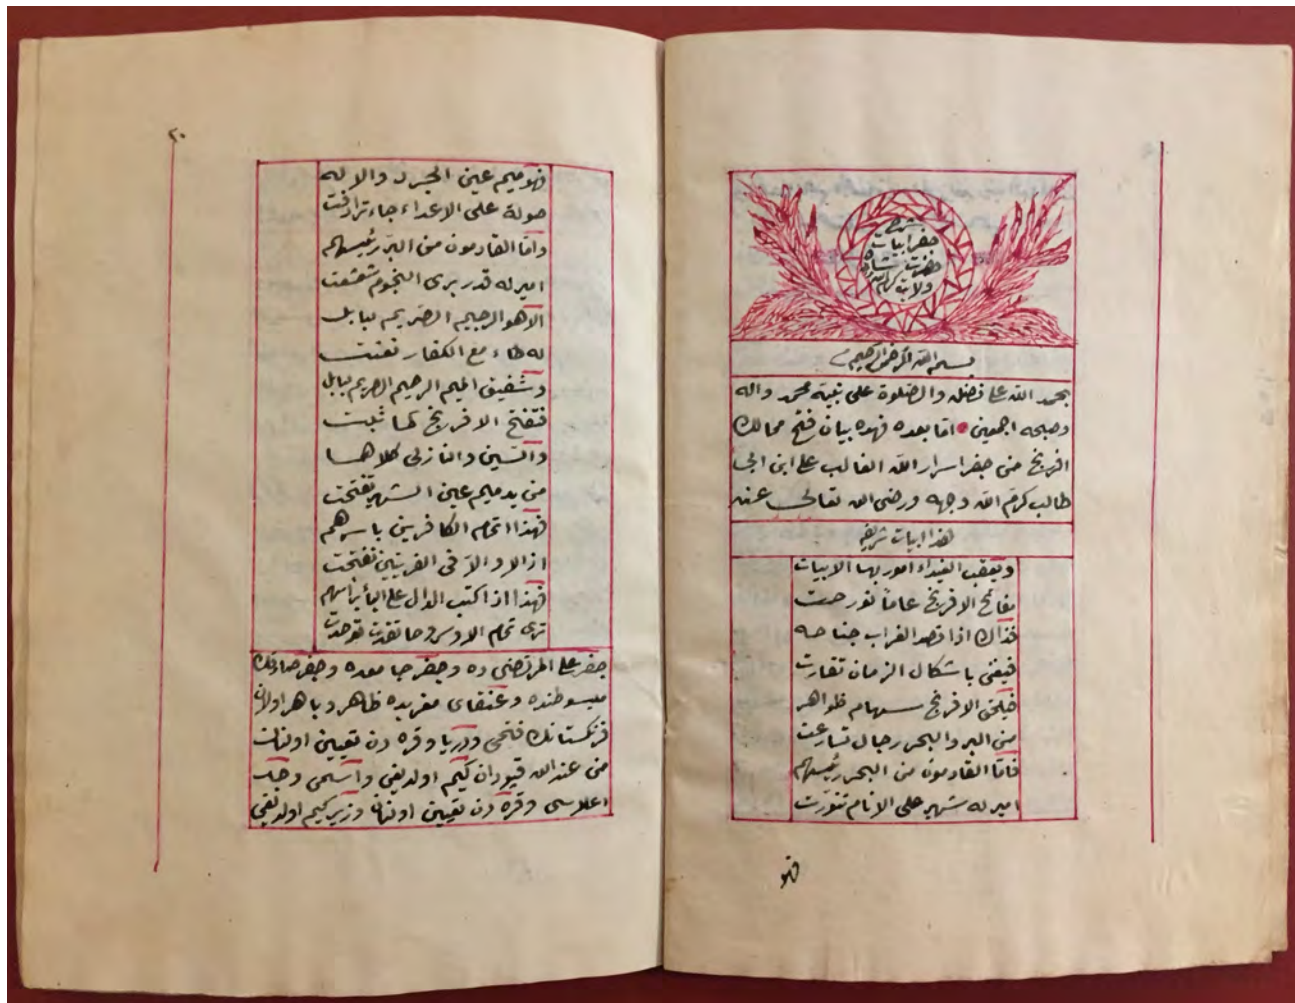 شرح
جفر ابيات
حضرت شاه
ولايت كرم الله وجهه
بسم الله الرحمن الرحيم
بحمد الله على فضله والصلوة على نبيه محمد واله
وصحبه اجمعين اما بعده فهذه بيان فتح ممالك
افرنج من جفر اسرار الله الغالب على ابن ابى
طالب كرم الله وجهه ورضى الله تعالى عنه
هذا ابيات شريفه
ويعقب الفيداء امور بها الابيات
مفاتح الافرنج عاما نورحت
فذاك اذا قصد الغراب جناحه
فيفنى باشكال الزمان تقارت
فيلحق الافرنج سهام ظواهر
من البر والبحر رجال تسارعت
فاما القادمون من البحر رئيسهم
امير له شهر على الانام تنورت
فهو
٢٠
فهو ميم عين الجرد والاله
صولة على الاعداء جاء ترادفت
واما القادمون من البر رئيسهم
امير له قدر يرى النجوم تشعشعت
الا هو الرجيم الصريم ببابل
له طاء مع الكفار تفنت
وشفيق الميم الرحيم الصريم ببابل
فتفتح الافرنج لما ثبتت
والسين والنازلى كلاهما
من يد ميم عين الشهر تفتحت
فهذا اتمام الكافرين باسرهم
اذ الاو والا فى القريتين تفتحت
فهذا اذا كتب الدال على الياء براسهم
ترى تمام الاوس وحا تعدت توحدت
جفر على المرتضى ده وجفر جامعده وجفر صادقك
مبسوطنده وعنقاى مغربده ظاهر وباهر اولان
فرنكستانك فتحى ودريا وقره دن تعيين اولنان
من عند الله قپودان كيم اولديغى واسمى وجد
اعلاسى وقره دن تعيين اولنان وزير كيم اولديغى